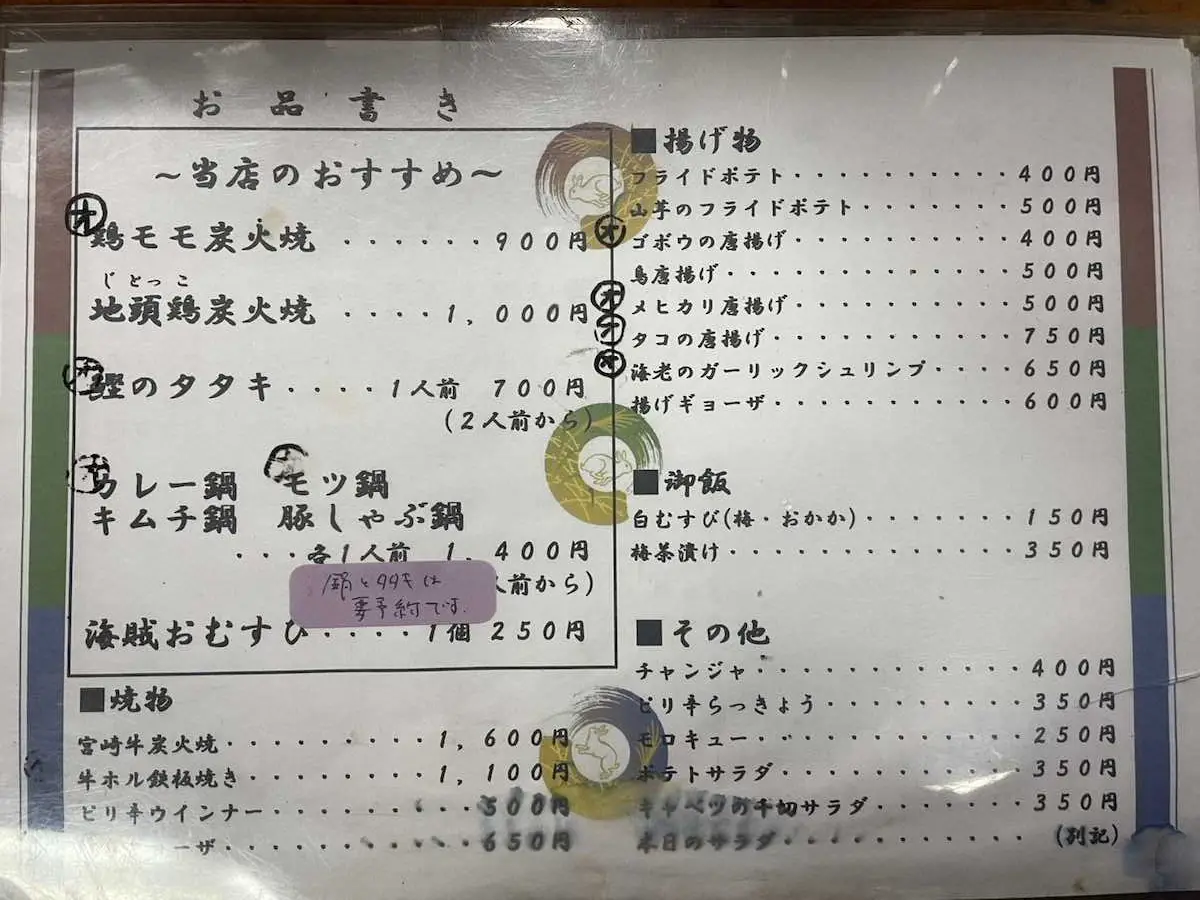 お品書き
～当店のおすすめ～
オ
鶏モモ炭火焼 ・・・・・・900円
じとっこ
地頭鶏炭火焼 ・・・・1,000円
鰹のタタキ・・・・1人前 700円
(2人前から)
カレー鍋 モツ鍋
キムチ鍋 豚しゃぶ鍋
・・・各1人前 1,400円
人前から)
鍋とタタキは
要予約です.
海賊おむすび・・・・1個 250円
■焼物
宮崎牛炭火焼・・・・・・・・・1,600円
牛ホル鉄板焼き・・・・・・・・1,100円
ピリ辛ウインナー・・・・・・・・500円
ーザ・・・・・・・・・・650円
■揚げ物
フライドポテト・・・・・・・・・・400円
山芋のフライドポテト・・・・・・・500円
オ
ゴボウの唐揚げ・・・・・・・・・・400円
鳥唐揚げ・・・・・・・・・・・・・500円
オ
メヒカリ唐揚げ・・・・・・・・・・500円
オ
タコの唐揚げ・・・・・・・・・・・750円
オ
海老のガーリックシュリンプ・・・・650円
揚げギョーザ・・・・・・・・・・・600円
■御飯
白むすび(梅・おかか)・・・・・・・150円
梅茶漬け・・・・・・・・・・・・・350円
■その他
チャンジャ・・・・・・・・・・・・400円
ピリ辛らっきょう・・・・・・・・・350円
モロキュー・・・・・・・・・・・・250円
ポテトサラダ・・・・・・・・・・・350円
キャベツの千切サラダ・・・・・・・350円
本日のサラダ・・・・・・・・・・・(別記)